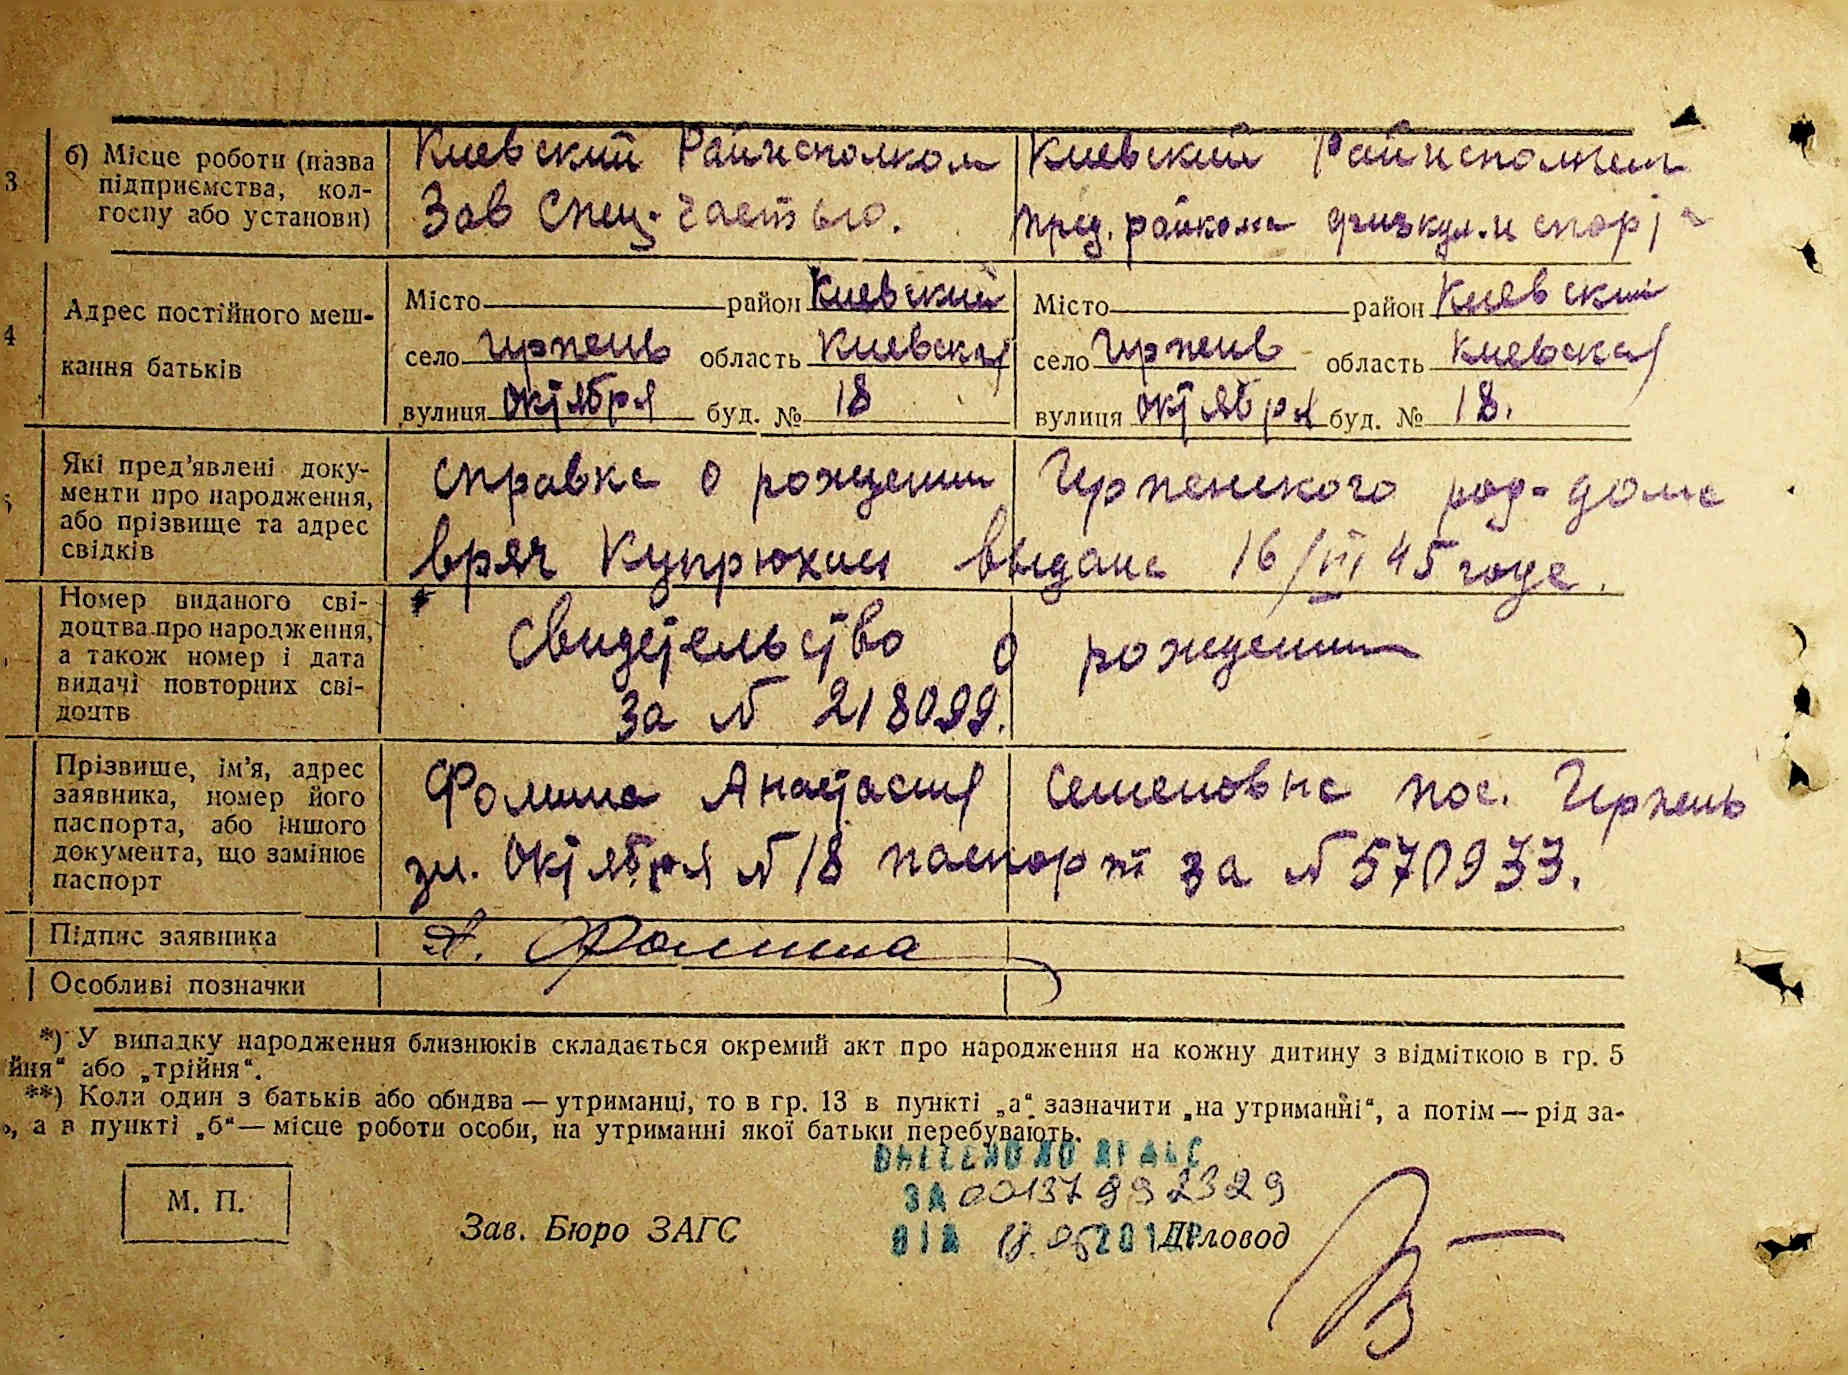 3 б) Місце роботи (назва підприємства, кол-госпу або установи)
Киевский Райисполком
Зав Спец. частью.
Киевский Райисполком
пред. райкома физкул. и спорт
4 Адрес постійного меш-
кання батьків
Місто район Киевский
село Ирпень область Киевская
вулиця Октября буд. № 18
Місто район Киевский
село Ирпень область Киевская
вулиця Октября буд. № 18.
Які пред’явлені доку-
менти про народження,
або прізвище та адрес
свідків
справка о рождении Ирпенского род-дома
врач выдана 16/III 45 года.
Номер виданого сві-
доцтва про народження,
а також номер і дата
видачі повторних сві-
доцтв
Свидетельство о рождении
за N 218099.
Прізвище, ім’я, адрес
заявника, номер його
паспорта, або іншого
документа, що замінює
паспорт
Фомина Анастасия Семеновна пос. Ирпень
ул. Октября N 18 паспорт за N 570933.
Підпис заявника
А. Фомина
Особливі позначки
*) У випадку народження близнюків складається окремий акт про народження на кожну дитину з відміткою в гр. 5
йня“ або „трійня“.
**) Коли один з батьків або обидва — утриманці, то в гр. 13 в пункті „а“ зазначити „на утриманні“, а потім — рід за-
, а в пункті „б“ — місце роботи особи, на утриманні якої батьки перебувають.
ВНЕСЕНО ДО ДРАЦС
ЗА 00137892329
ВІД
М. П.
Зав. Бюро ЗАГС
Діловод